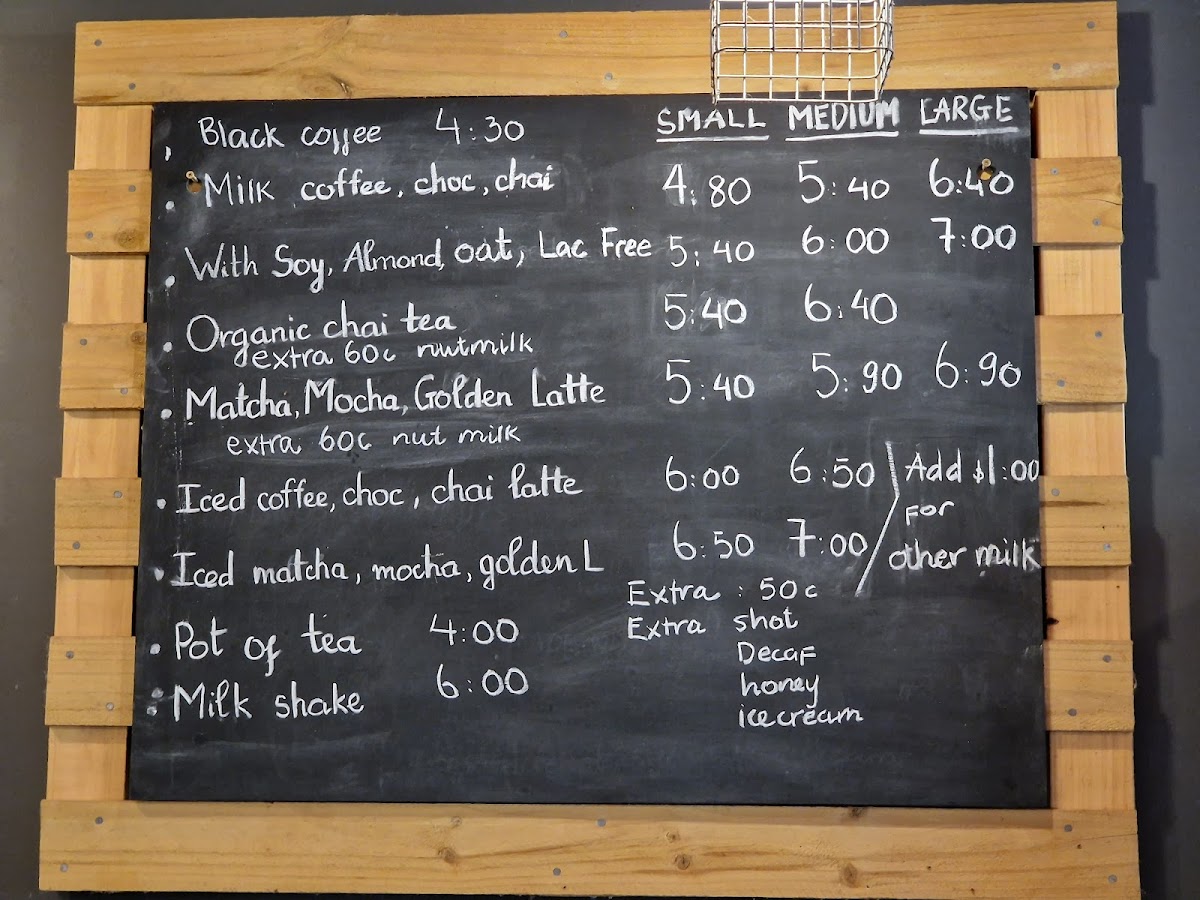 SMALL MEDIUM LARGE
Black coffee 4:30
Milk coffee, choc, chai 4:80 5:40 6:40
With Soy, Almond, oat, Lac Free 5:40 6:00 7:00
Organic chai tea 5:40 6:40
extra 60c nutmilk
Matcha, Mocha, Golden Latte 5:40 5:90 6:90
extra 60c nut milk
Iced coffee, choc, chai latte 6:00 6:50
Iced matcha, mocha, golden L 6:50 7:00
Add $1:00
For
other milk
Pot of tea 4:00
Milk shake 6:00
Extra : 50c
Extra shot
Decaf
honey
icecream